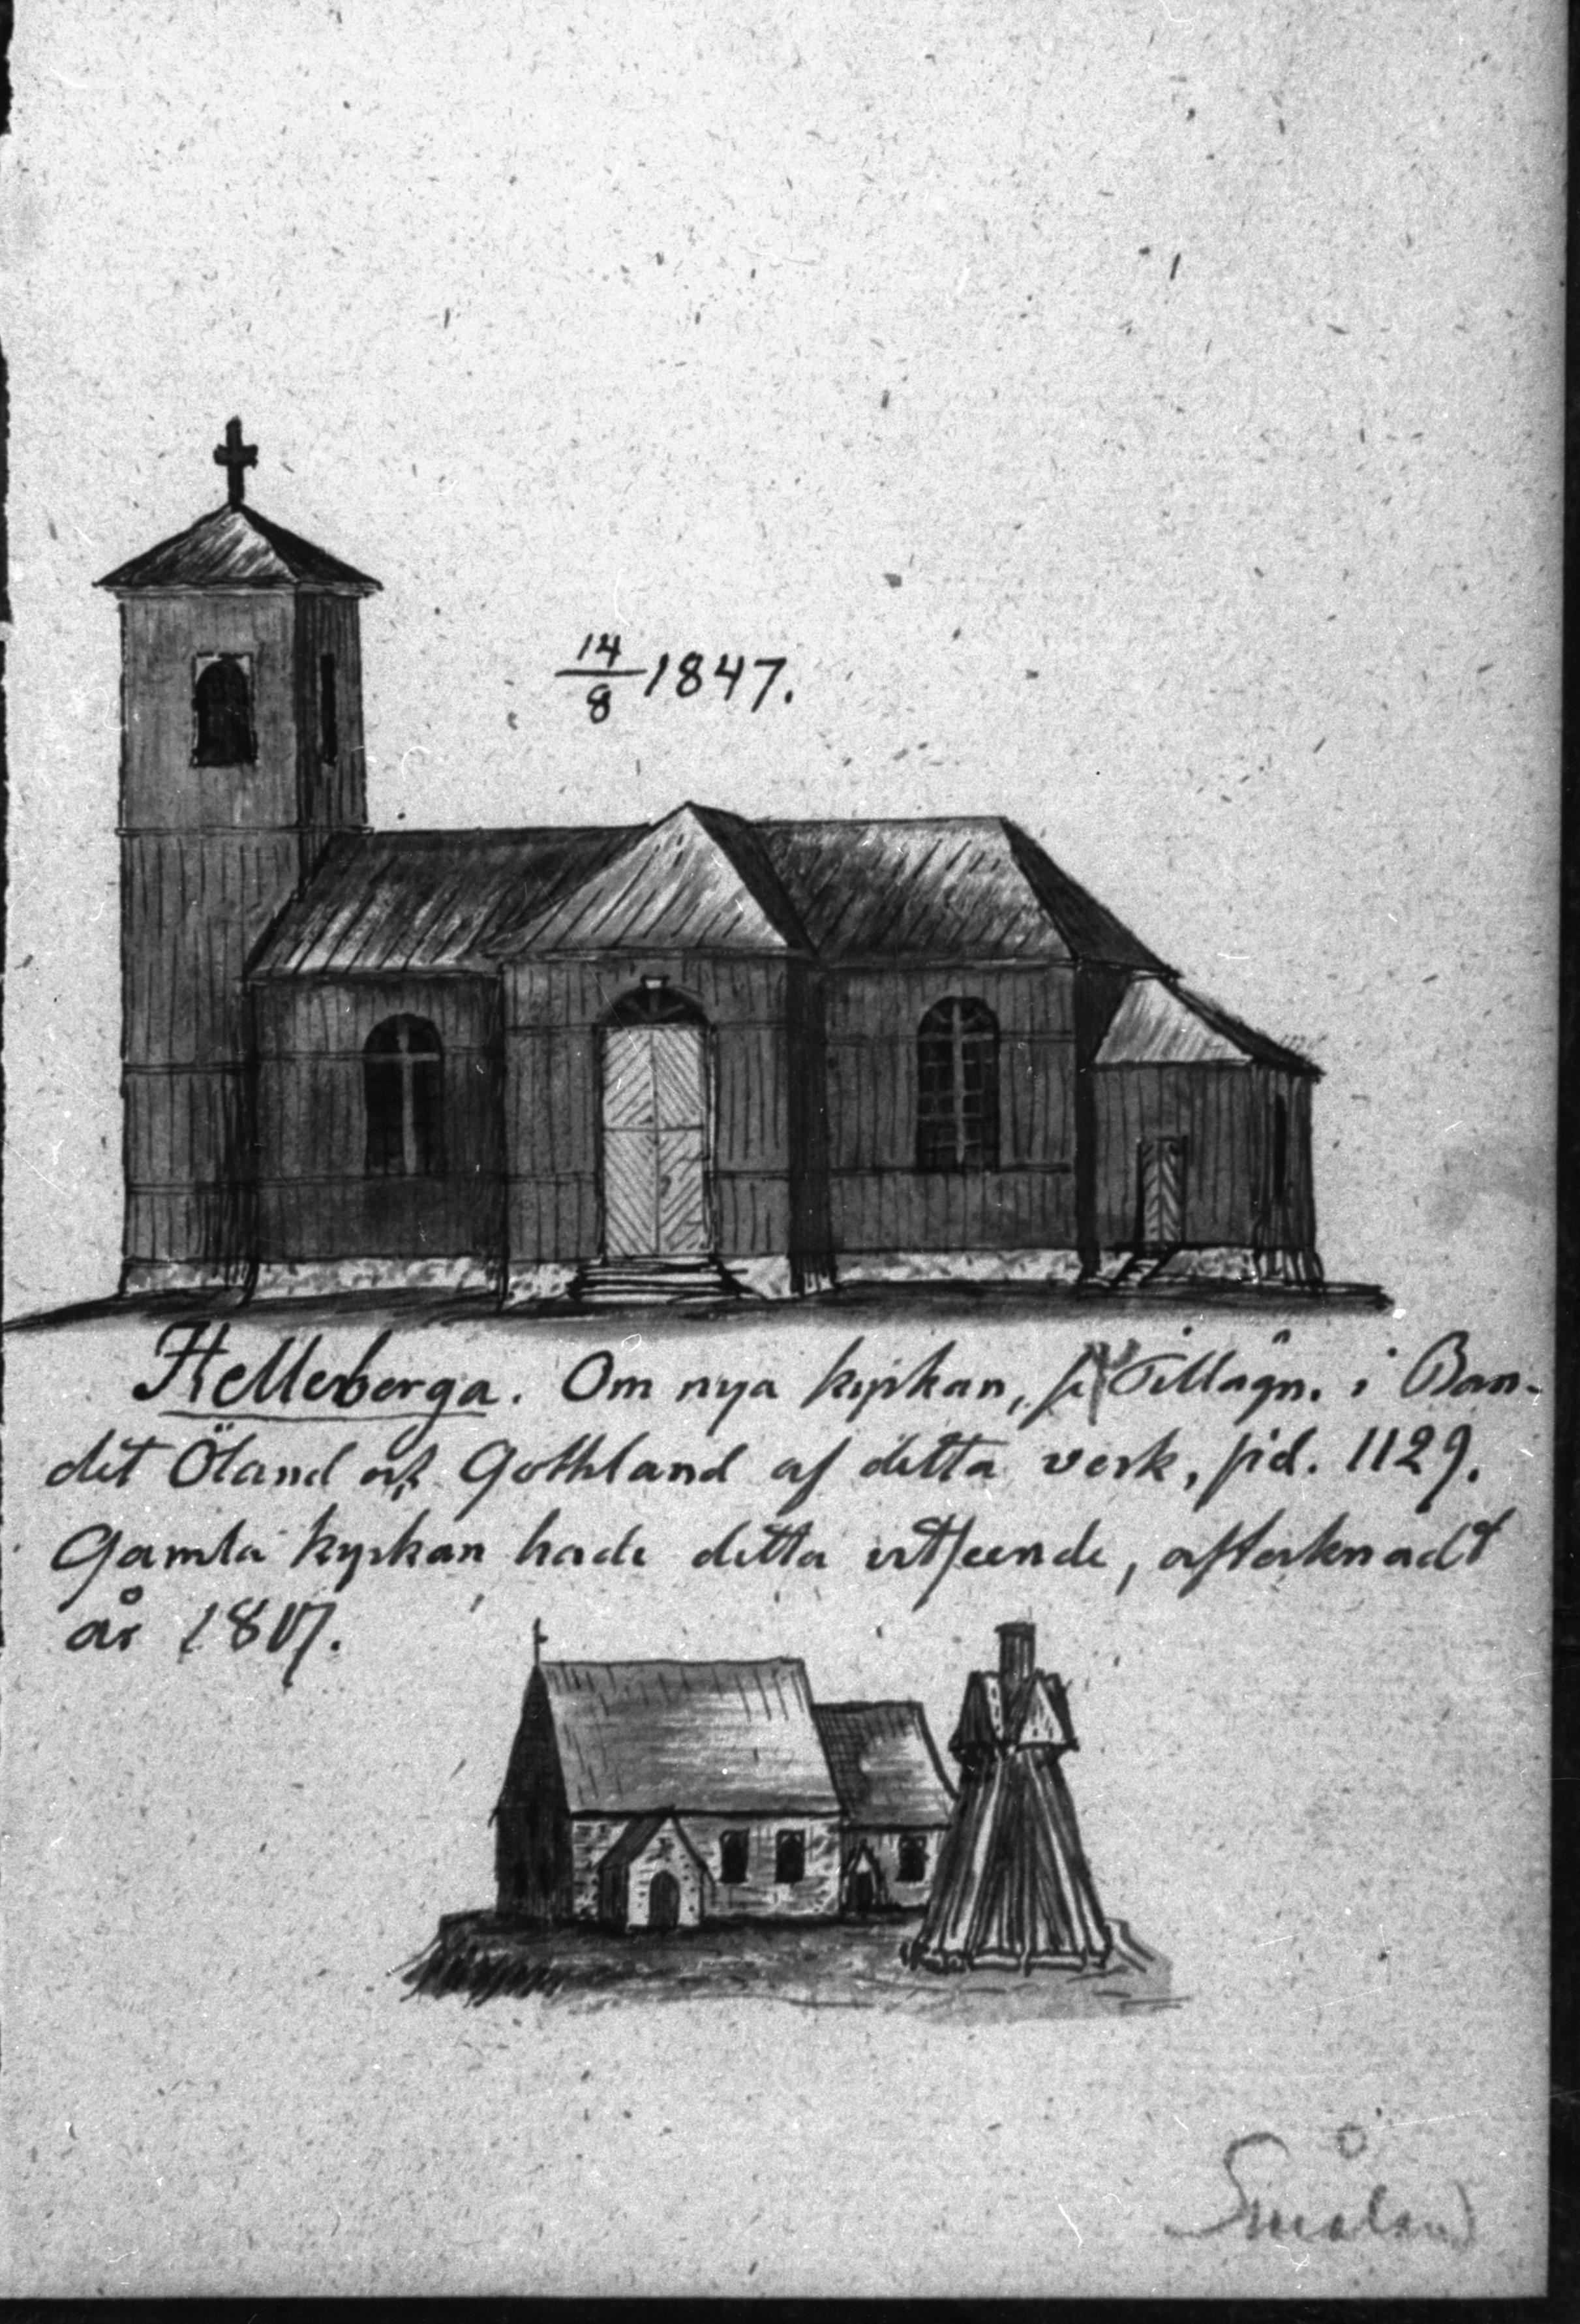 14/8 1847.
Hellerberga. Om nya kyrkan, se Tillägn. i Ban-
det Öland och Gothland af detta verk, sid. 1129.
Gamla kyrkan hade detta utseende, aftecknadt
år 1817.
Småland